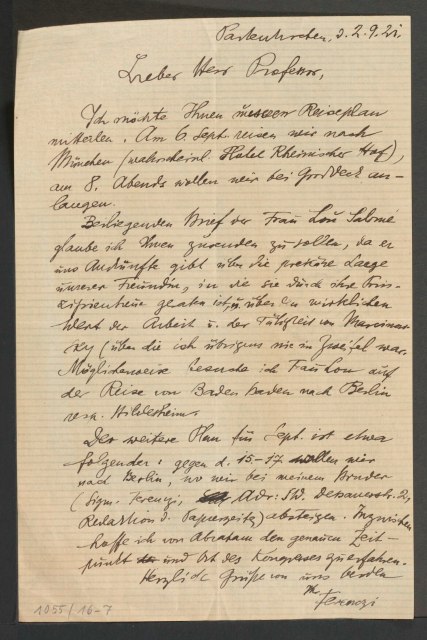 Partenkirchen, d. 2.9.21.
Lieber Herr Professor,
Ich möchte Ihnen unseren Reiseplan
mitteilen. Am 6 Sept. reisen wir nach
München (wahrscheinl. Hotel Rheinischer Hof),
am 8. Abends wollen wir bei Groddeck an-
langen.
Beiliegenden Brief der Frau Lou Salomé
glaube ich Ihnen zusenden zu sollen, da er
uns Auskünfte gibt über die prekäre Lage
unserer Freundin, in die sie durch ihre Prin-
zipientreue geraten ist, u. über den wirklichen
Wert der Arbeit u. der Tätigkeit von Marcinow-
ky (über die ich übrigens nie im Zweifel war.
Möglicherweise besuche ich Frau Lou auf
der Reise von Baden baden nach Berlin
resp. Hildesheim.
Der weitere Plan für Sept. ist etwa
folgender: gegen d. 15-17. wollen wir
nach Berlin, wo wir bei meinem Bruder
(Sigm. Ferenczi, Adr: SW. Dessauerstr. 2,
Redaktion d. Papierzeitg) absteigen. Inzwischen
hoffe ich von Abraham den genauen Zeit-
punkt und Ort des Kongresses zu erfahren.
Herzliche Grüße von uns beiden
Ihr
Ferenczi
1055/16-7